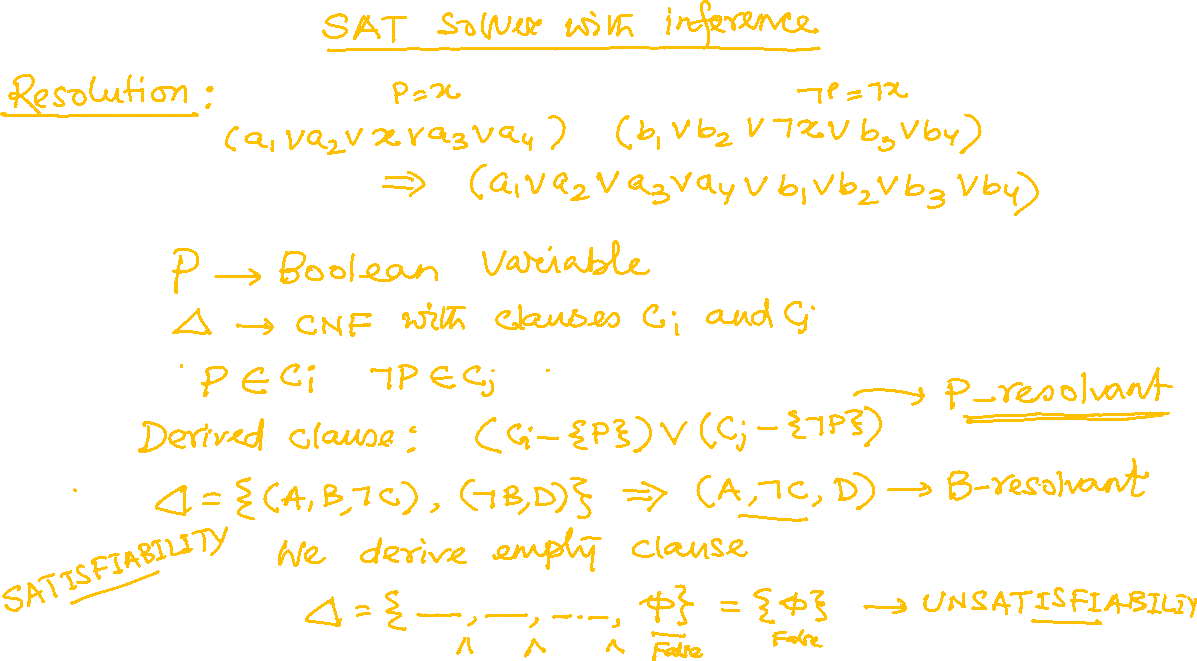 SAT Solver with inference
Resolution :
P=x ¬P=¬x
(a₁∨a₂∨x∨a₃∨a₄) (b₁∨b₂∨¬x∨b₃∨b₄)
⇒ (a₁∨a₂∨a₃∨a₄∨b₁∨b₂∨b₃∨b₄)
P → Boolean Variable
Δ → CNF with clauses Cᵢ and Cⱼ
P ∈ Cᵢ ¬P ∈ Cⱼ
Derived clause : (Cᵢ-{P})∨(Cⱼ-{¬P}) → P_resolvant
Δ = {(A,B,¬C), (¬B,D)} ⇒ (A,¬C,D) → B-resolvant
SATISFIABILITY
We derive empty clause
Δ = {—,—,...., ϕ} = {ϕ} → UNSATISFIABILITY
∧ ∧ ∧ False False